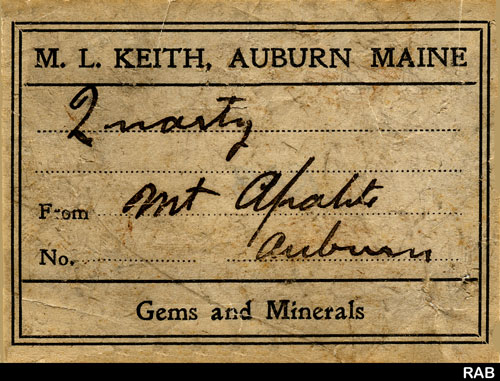 M. L. KEITH, AUBURN MAINE
Quartz
From Mt Apatite
No. Auburn
Gems and Minerals
RAB